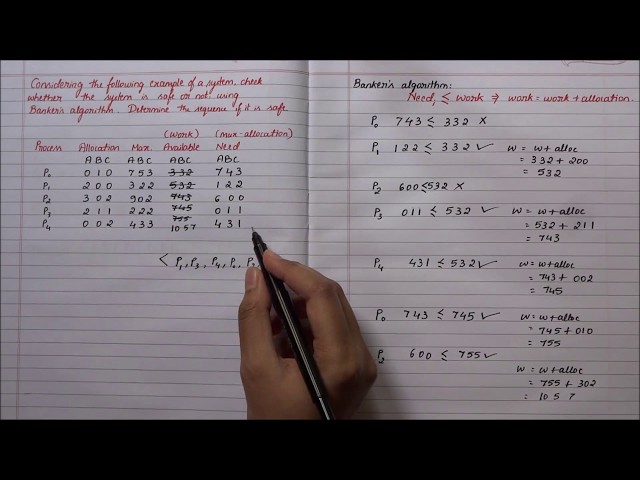 Considering the following example of a system, check
whether the system is safe or not using
Banker's algorithm. Determine the sequence if it is safe
(work) (max-allocation)
Process Allocation Max. Available Need
A B C A B C A B C A B C
P0 0 1 0 7 5 3 3 3 2 7 4 3
P1 2 0 0 3 2 2 5 3 2 1 2 2
P2 3 0 2 9 0 2 7 4 3 6 0 0
P3 2 1 1 2 2 2 7 4 5 0 1 1
7 5 5
P4 0 0 2 4 3 3 10 5 7 4 3 1
< P1, P3, P4, P0, P2
Banker's algorithm:
Needi ≤ work ⇒ work = work + allocation.
P0 7 4 3 ≤ 3 3 2 ×
P1 1 2 2 ≤ 3 3 2 ✓ w = w + alloc
= 3 3 2 + 2 0 0
= 5 3 2
P2 6 0 0 ≤ 5 3 2 ×
P3 0 1 1 ≤ 5 3 2 ✓ w = w + alloc
= 5 3 2 + 2 1 1
= 7 4 3
P4 4 3 1 ≤ 5 3 2 ✓ w = w + alloc
= 7 4 3 + 0 0 2
= 7 4 5
P0 7 4 3 ≤ 7 4 5 ✓ w = w + alloc
= 7 4 5 + 0 1 0
= 7 5 5
P2 6 0 0 ≤ 7 5 5 ✓ w = w + alloc
= 7 5 5 + 3 0 2
= 10 5 7